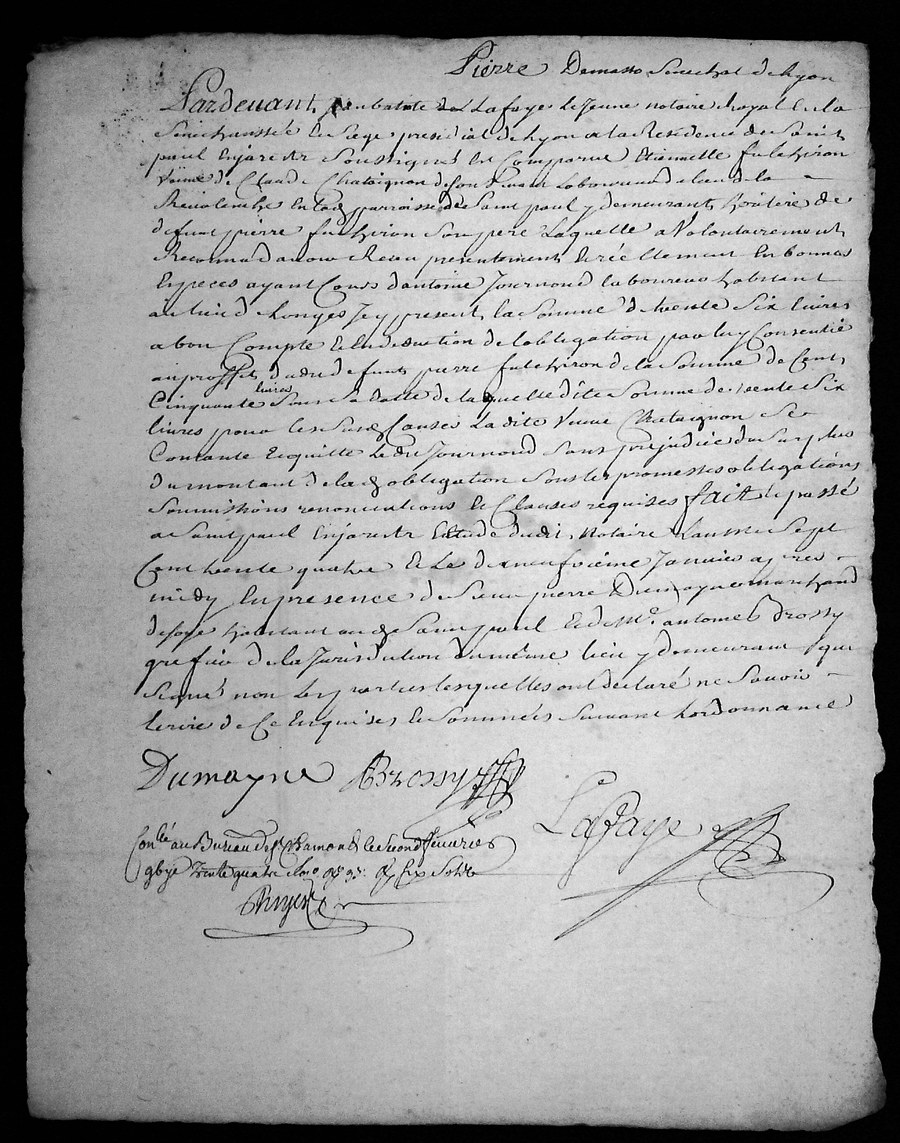 Pierre Demasso Senechal de Lyon
Pardevant Jean baptiste Lafaye le Jeune notaire Royal En la
Senechaussée Et Siege presidial de Lyon a la Residence de Saint
paul Enjarestz Soussigné Est Comparue Etiennette futchiron
Veuve de Claude Chataignon de Son vivant Laboureur du lieu de la
En lad parroisse de Saint paul y demeurant heritiere de
defunt pierre futchiron Son pere Laquelle a Volontairement
Reconnu avoir Receu presentement Et réellement En bonnes
Especes ayant Cours d'antoine Journoud laboureur habitant
au lieu de Icy present la Somme de trente Six livres
a bon Compte Et en deduction de l'obligation par luy Consentie
au proffit dudit defunt pierre futchiron de la Somme de Cent
Cinquante livres Sous Sa datte de laquelle dite Somme de trente Six
livres pour les Susd Causes La dite Veuve Chataignon Se
Contante Et quitte Ledit Journoud Sans prejudice du Surplus
du montant de lad obligation Sous les promesses obligations
Soumissions renonciations Et Clauses requises fait Et passé
a Saint paul Enjarestz Estude dudit Notaire L'an mil Sept
Cent trente quatre Et Le dixneufvieme Janvier apres
midy En presence de Sieur pierre Dumayne marchand
de soye habitant aud Saint paul Et de Me. antoine Brossy
grefier de la Jurisdiction du même lieu y demeurant qui
Signé non les parties lesquelles ont declaré ne Scavoir
Ecrire de Ce Enquises Et Sommées Suivant Lordonnance
Dumayne Brossy
Lafaye
Conlé au Bureau de St Chamond le Second fevrier
trente quatre Six Sols